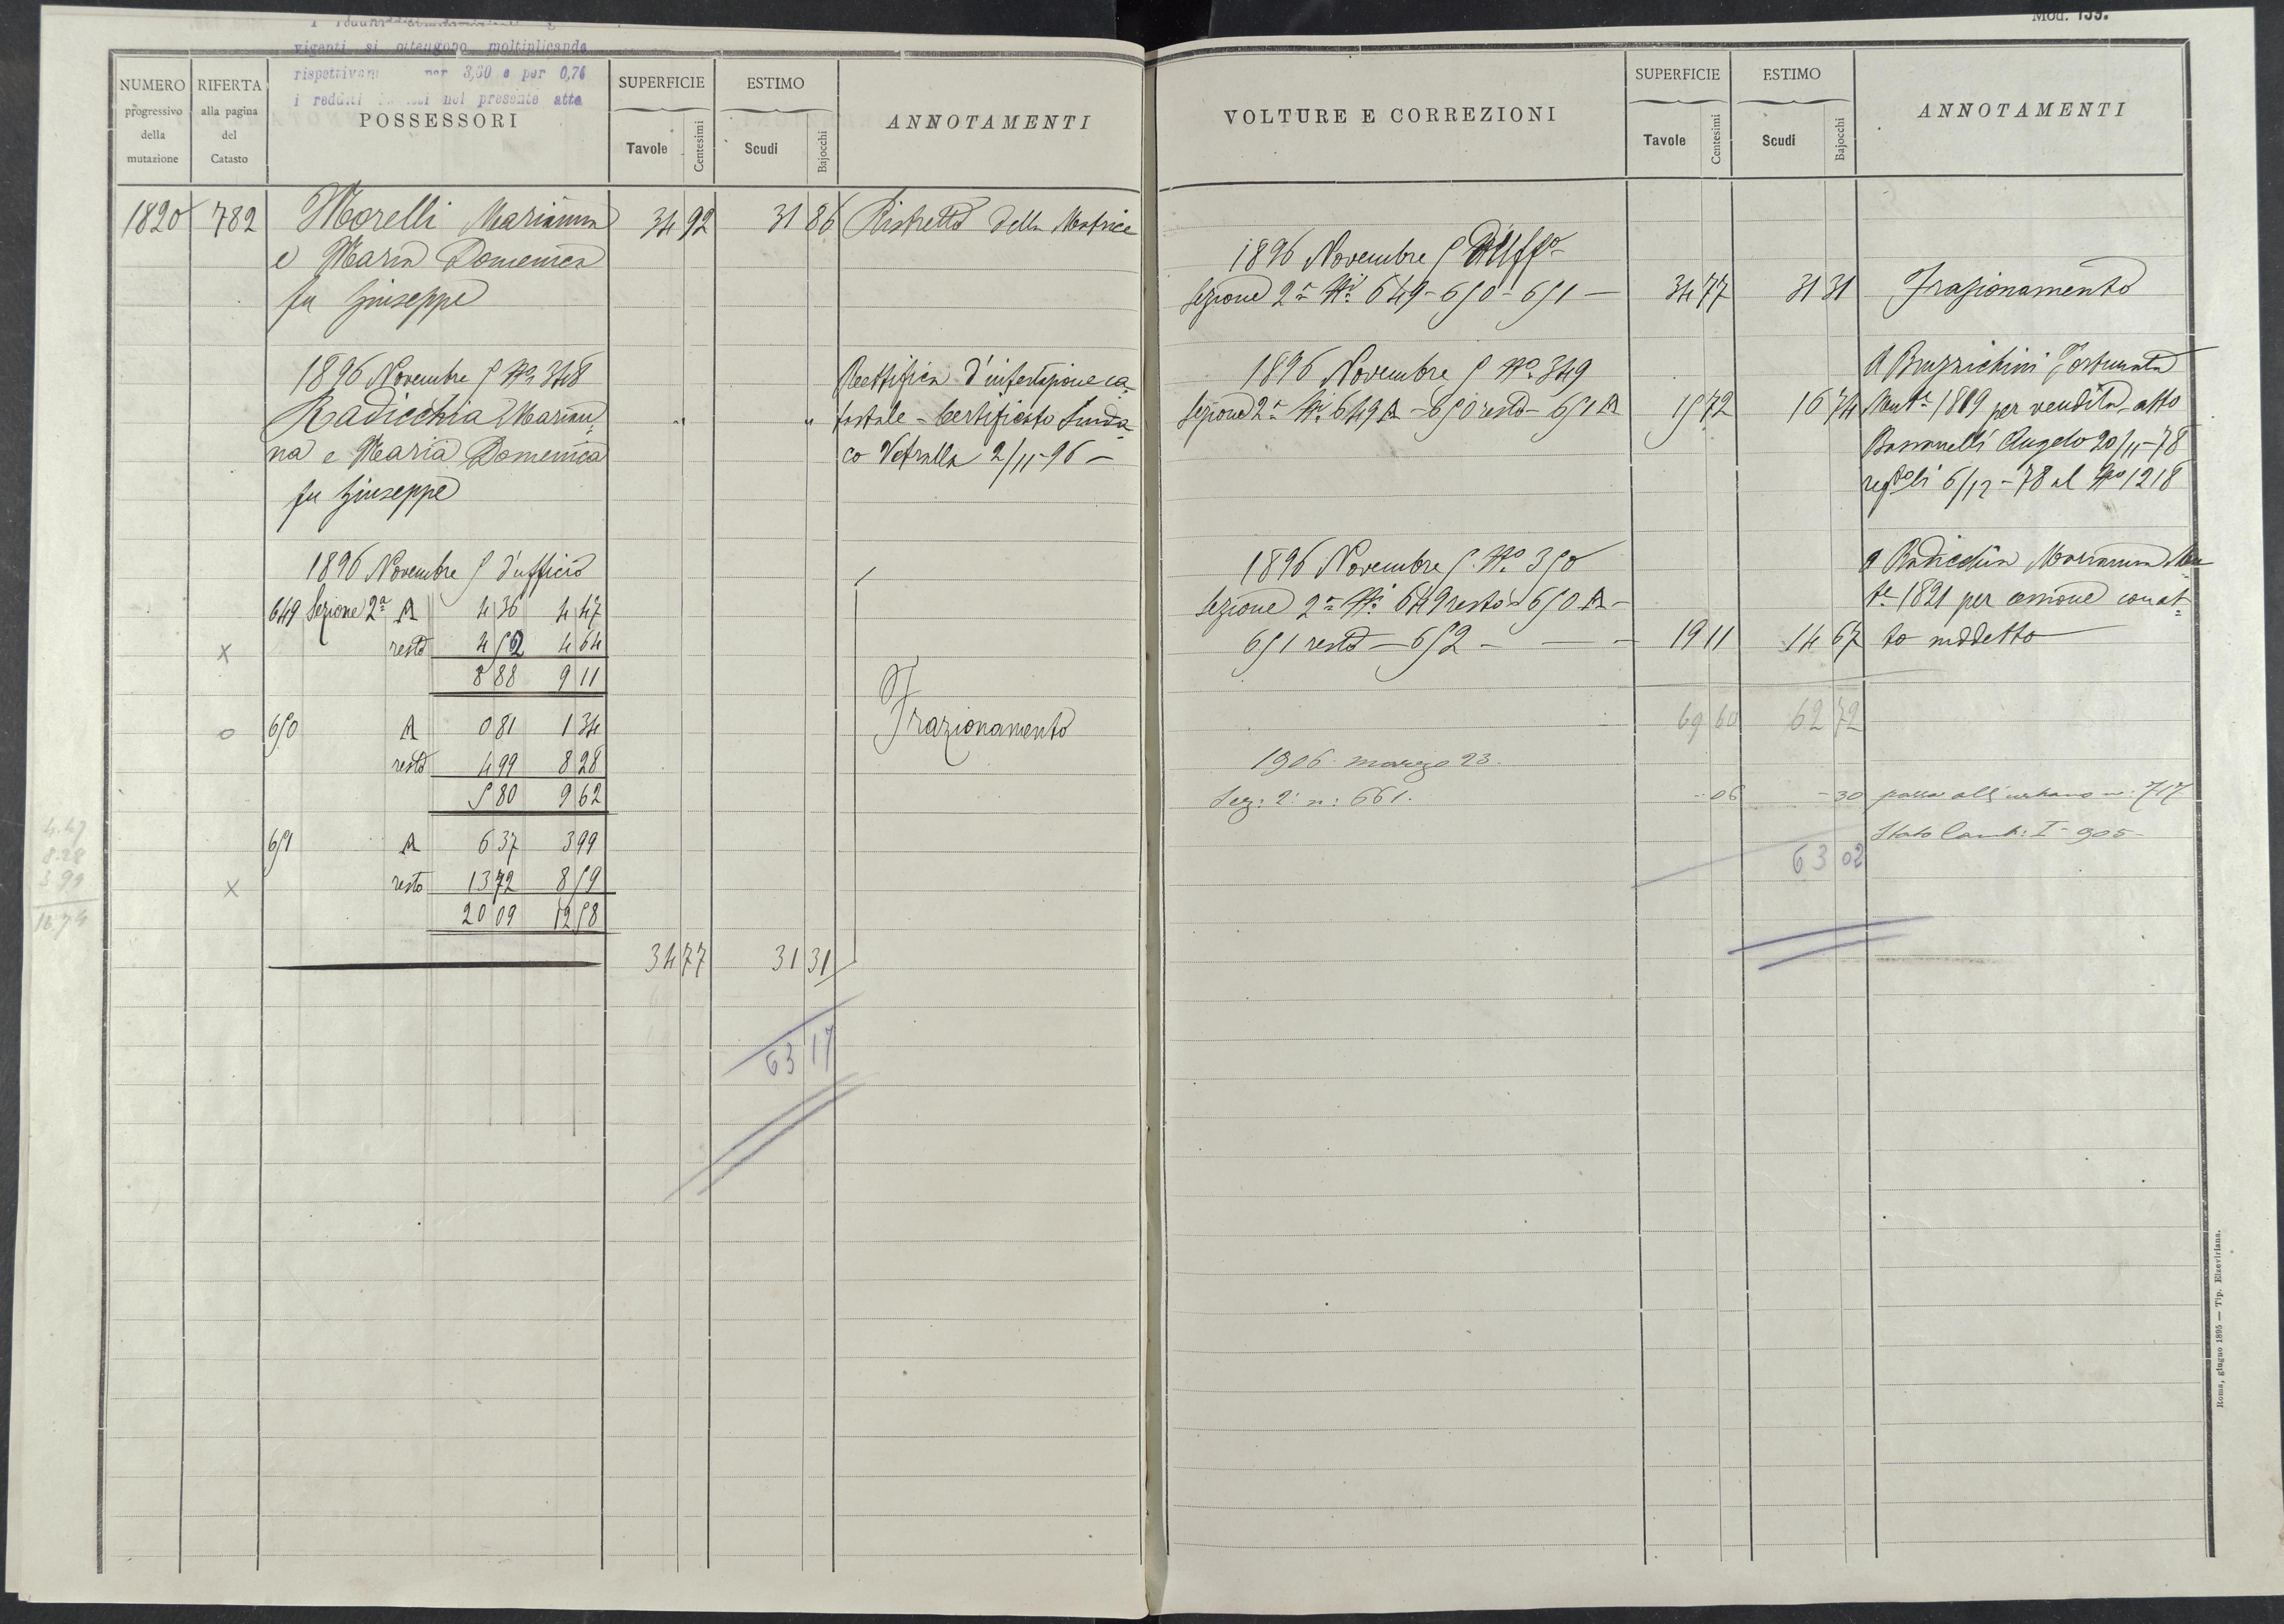 vigenti si ottengono moltiplicando
rispettivam per 3,60 e per 0,76
i redditi nel presente atto
NUMERO progressivo della mutazione
RIFERTA alla pagina del Catasto
POSSESSORI
SUPERFICIE
Tavole Centesimi
ESTIMO
Scudi Bajocchi
ANNOTAMENTI
1820 782 Morelli Marianna 34 92 31 86 Ristretto della Matrice
e Maria Domenica
fu Giuseppe
1896 Novembre 5 No 348 Rettifica d'intestazione ca=
Radicchia Marian= " " tastale - Certificato Sinda=
na e Maria Domenica co Vetralla 2/11-96 -
fu Giuseppe
1896 Novembre 5 d'ufficio
649 Sezione 2a A 4 36 4 47
x resto 4 52 4 64
8 88 9 11
o 650 A 0 81 1 34 Frazionamento
resto 4 99 8 28
5 80 9 62
651 A 6 37 3 99
x resto 13 72 8 59
20 09 12 58
34 77 31 31
63 17
4.47
8.28
3 99
16.74
Mod. 139.
VOLTURE E CORREZIONI
SUPERFICIE
Tavole Centesimi
ESTIMO
Scudi Bajocchi
ANNOTAMENTI
1896 Novembre 5 D'Uffo
Sezione 2a Ni 649 - 650 - 651 - 34 77 31 31 Frazionamento
1896 Novembre 5 No 349 A Bruzzichini Fortunata
Sezione 2a Ni 649 A - 650 resto - 651 A 15 72 16 74 Mute 1819 per vendita atto
Bassanelli Angelo 20/11-78
regto li 6/12-78 al No 1218
1896 Novembre 5 No 350 a Radicchia Marianna Mu=
Sezione 2a Ni 649 resto - 650 A - te 1821 per cessione con at=
651 resto - 652 - - - 19 11 14 67 to suddetto
69 60 62 72
1906 marzo 23.
Sez: 2a n: 661. - 06 - 30 passa all'urbano n: 717
Stato Camb: I - 905 -
63 02
Roma, giugno 1895 — Tip. Elzeviriana.